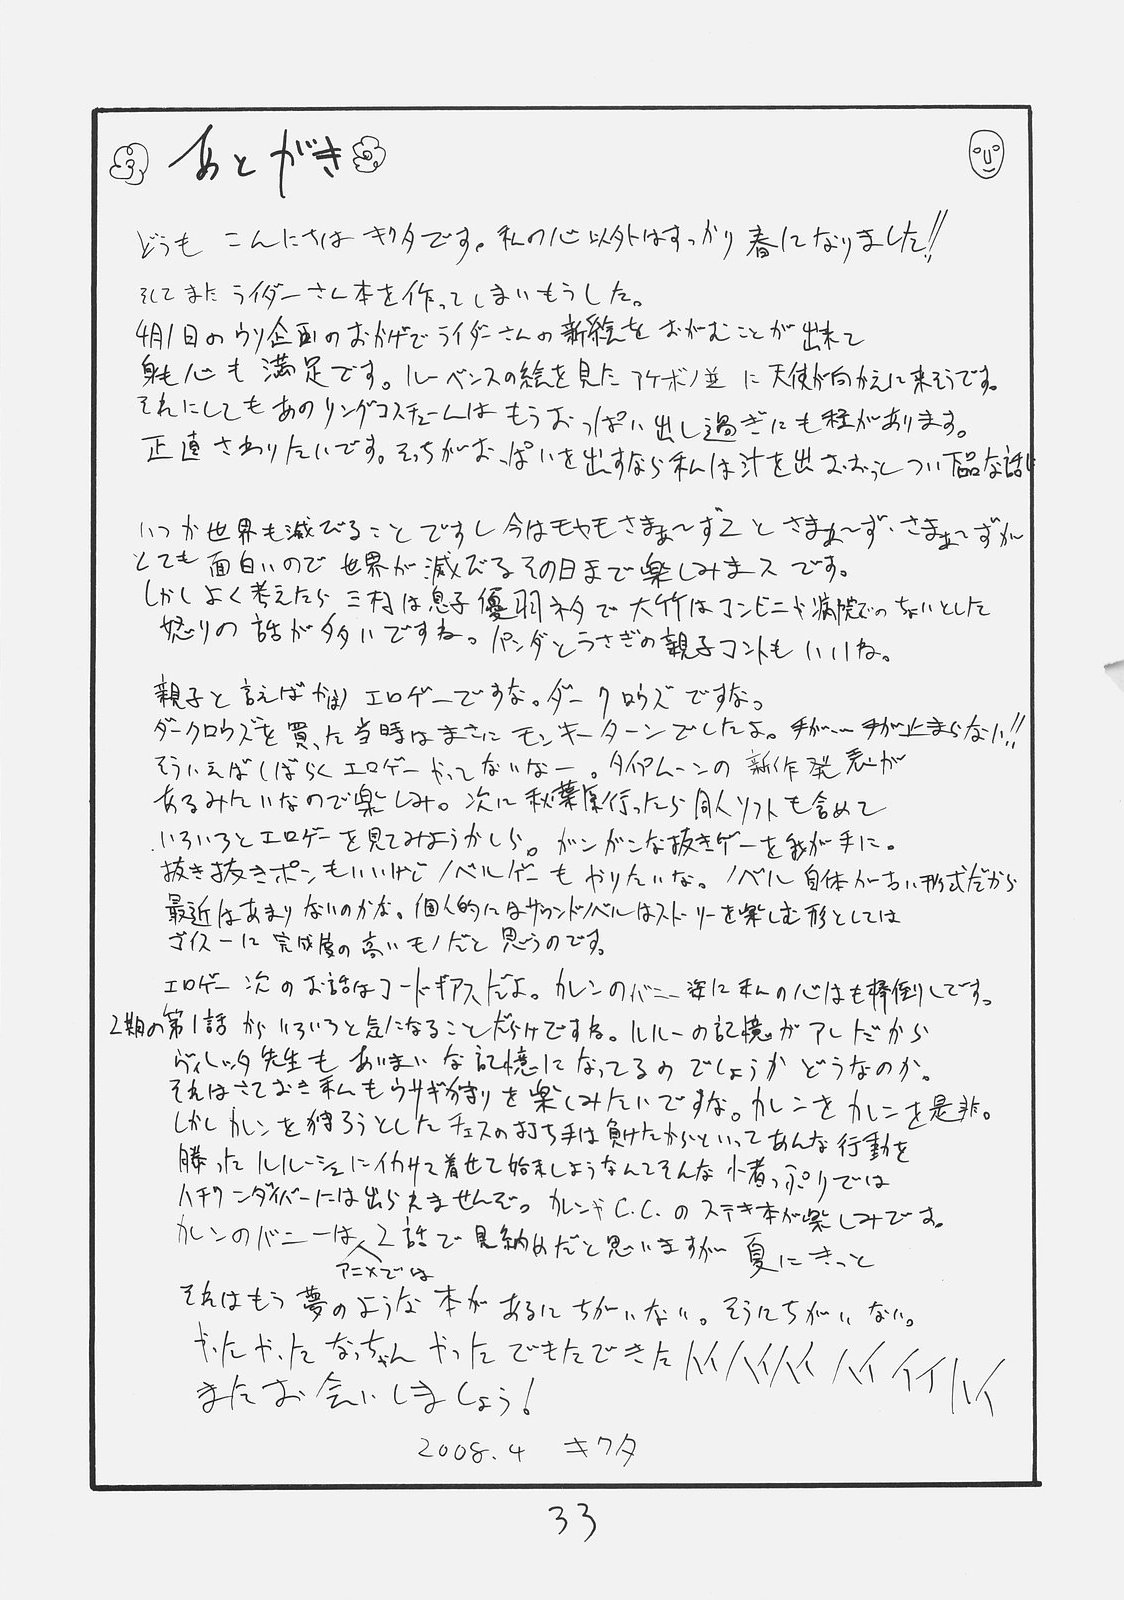 あとがき
どうも こんにちは キクタです。私の心以外はすっかり 春になりました!!
そしてまた ライダーさん本を作ってしまいもうした。
4月1日のウソ企画のおかげでライダーさんの新絵をおがむことが出来て
身も心も満足です。ルーベンスの絵を見たアケボノ並に天使が向かえに来そうです。
それにしてもあのリングコスチュームはもうおっぱい出し過ぎにも程があります。
正直さわりたいです。そっちがおっぱいを出すなら私は汁を出おおっとつい下品な話に
いつか世界も滅びることですし今はモヤモヤさまぁ〜ず2とさまぁ〜ず・さまぁ〜ずが
とても面白いので世界が滅びるその日まで楽しみまスです。
しかしよく考えたら三村は息子優羽ネタで大竹はコンビニや病院でのちょいとした
怒りの話が多いですね。パンダとうさぎの親子コントもいいね。
親子と言えばやはりエロゲーですな。ダークロウズですな。
ダークロウズを買った当時はまさにモンキーターンでしたよ。手が…手が止まらない!!
そういえばしばらくエロゲーやってないなー。タイアムーンの新作発表が
あるみたいなので楽しみ。次に秋葉原行ったら同人ソフトも含めて
いろいろとエロゲーを見てみようかしら。ガンガンな抜きゲーを我が手に。
抜き抜きポンもいいけどノベルゲーもやりたいな。ノベル自体が古い形式だから
最近はあまりないのかな。個人的にはサウンドノベルはストーリーを楽しむ形としては
ゴイスーに完成度の高いモノだと思うのです。
エロゲー次のお話はコードギアスだよ。カレンのバニー姿に私の心はも棒倒しです。
2期の第1話からいろいろと気になることだらけですね。ルルーの記憶がアレだから
ヴィレッタ先生もあいまいな記憶になってるのでしょうかどうなのか。
それはさておき私もウサギ狩りを楽しみたいですな。カレンをカレンを是非。
しかしカレンを狩ろうとしたチェスの打ち手は負けたからといってあんな行動を
勝ったルルーシュにイカサマ着せて始末しようなんてそんな小者っぷりでは
ハチワンダイバーには出られませんぞ。カレンやC.C.のステキ本が楽しみです。
カレンのバニーはアニメでは2話で見納めだと思いますが夏にきっと
それはもう夢のような本があるにちがいない。そうにちがいない。
やったやったなっちゃんやったでもたできたハイハイハイハイイイハイ
またお会いしましょう!
2008.4 キクタ
33